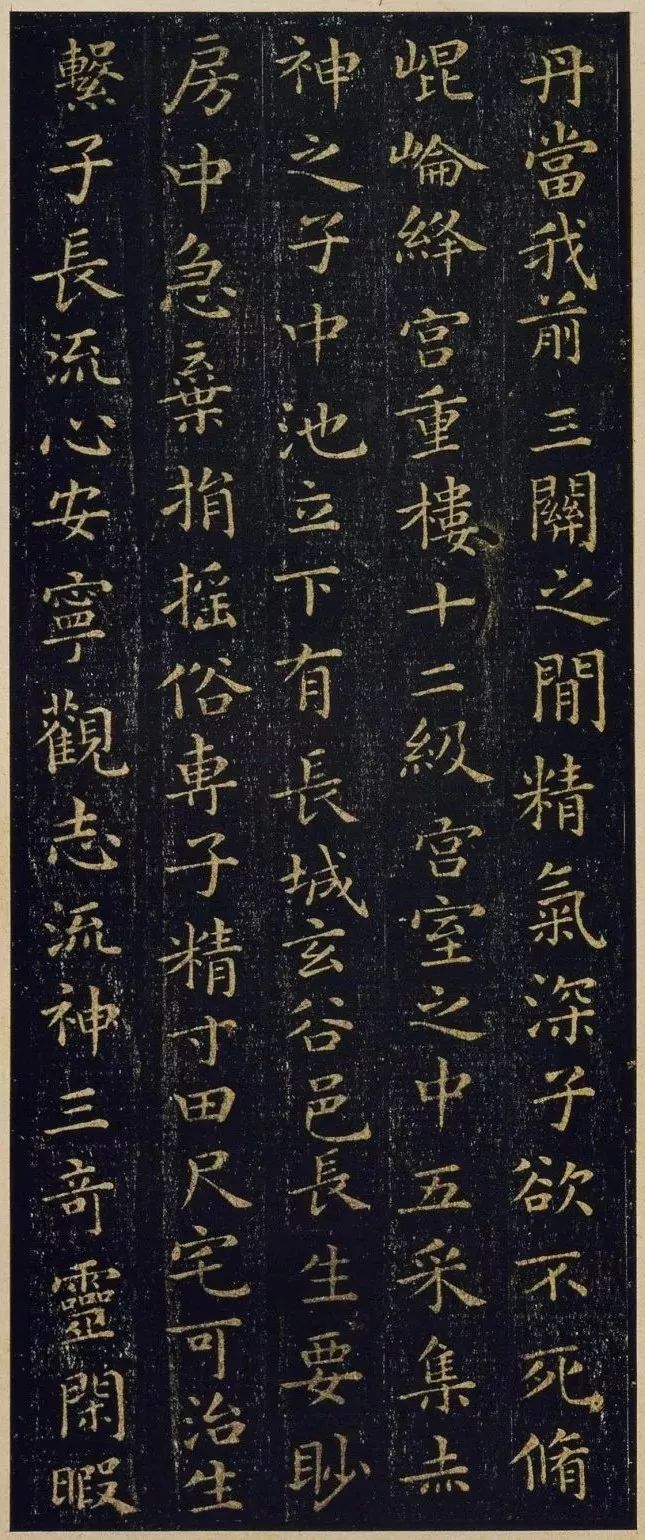 丹當我前三關之間精氣深子欲不死脩
崐崘絳宮重樓十二級宮室之中五采集赤
神之子中池立下有長城玄谷邑長生要眇
房中急棄捐摇俗專子精寸田尺宅可治生
繫子長流心安寧觀志流神三奇靈閑暇